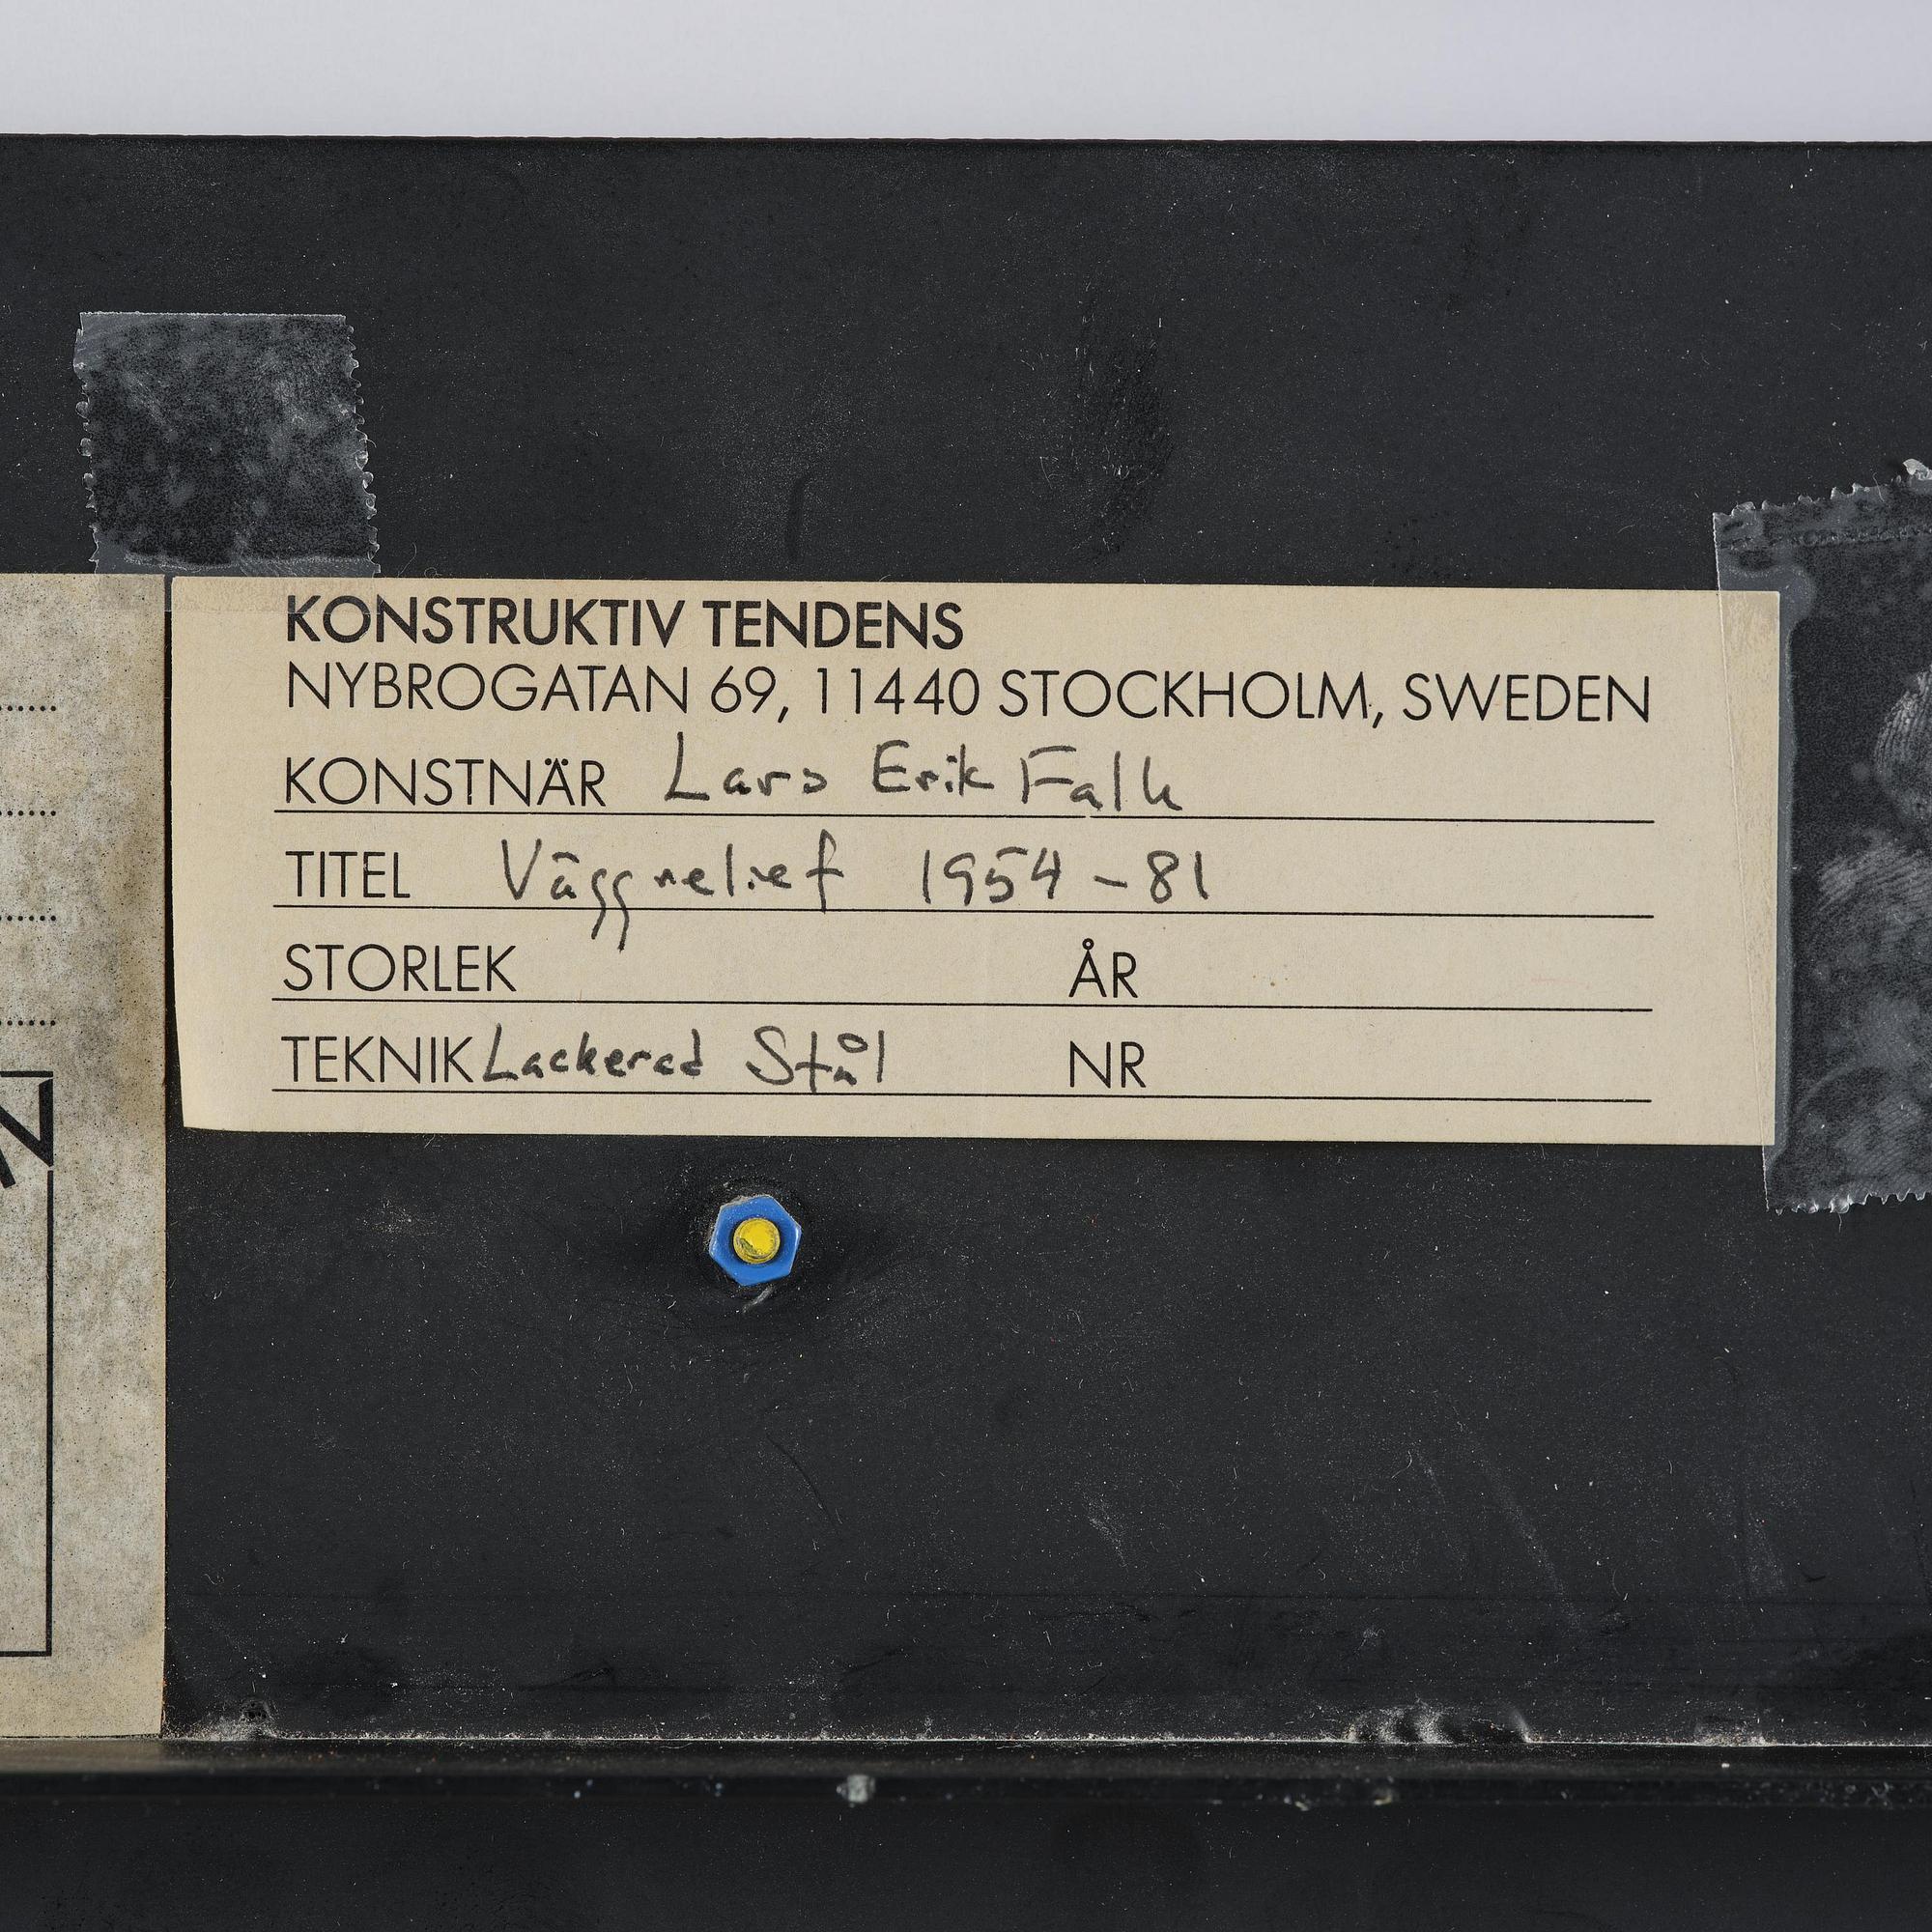 KONSTRUKTIV TENDENS
NYBROGATAN 69, 11440 STOCKHOLM, SWEDEN
KONSTNÄR Lars Erik Falk
TITEL Väggrelief 1954-81
STORLEK ÅR
TEKNIK Lackerad Stål NR
N